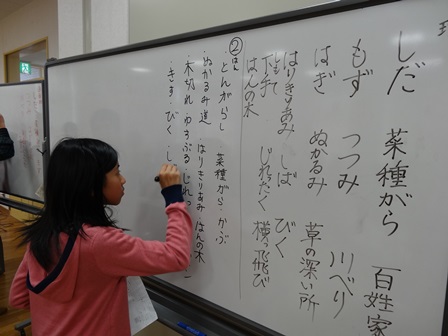 しだ 菜種がら 百姓家
もず つつみ 川べり
はぎ ぬかるみ 草の深い所
はりきりあみ しば びく
下手 じれったく 横っ飛び
はんの木
②はん
・とんがらし 菜種がら・かぶ
・ぬかるみ道 ・はりきりあみ はんの木
・木切れ ゆろぶる じれっ
・きす・びく・し